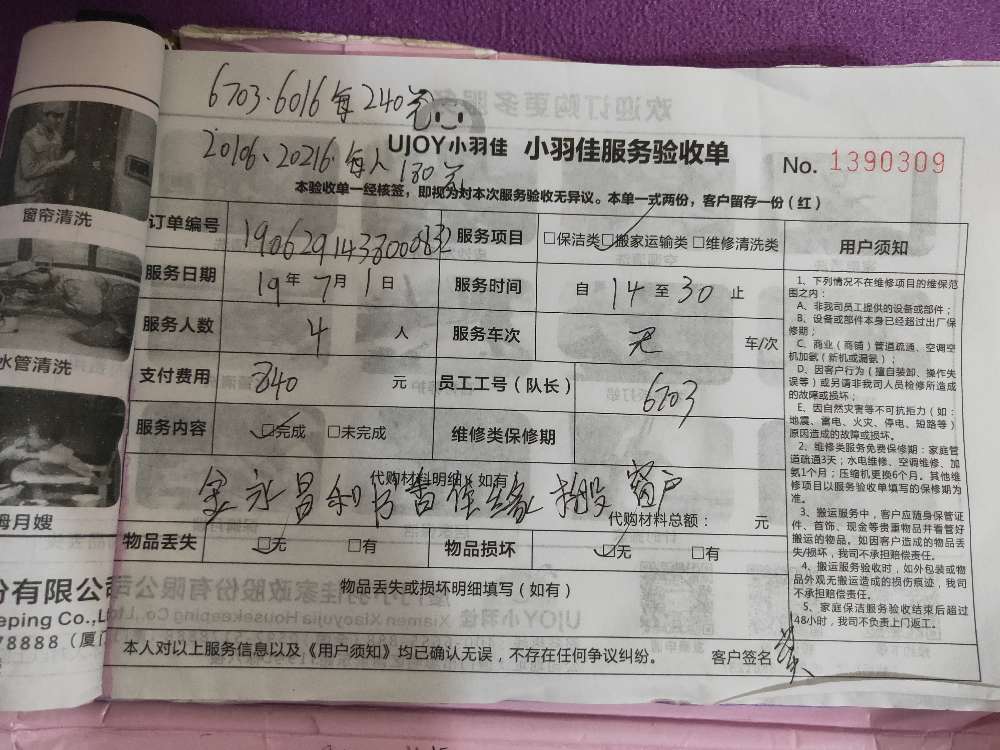 6703.6016每240元
UJOY小羽佳 小羽佳服务验收单
No. 1390309
20106、20216.每人180元
本验收单一经核签，即视为对本次服务验收无异议。本单一式两份，客户留存一份（红）
订单编号 服务项目 □保洁类 □搬家运输类 □维修清洗类
服务日期 19年7月1日 服务时间 自 14 至 30 止
服务人数 4 人 服务车次 无 车/次
支付费用 840 元 员工工号（队长） 6703
服务内容 □完成 □未完成 维修类保修期
代购材料明细（如有）
代购材料总额： 元
物品丢失 □无 □有 物品损坏 □无 □有
物品丢失或损坏明细填写（如有）
本人对以上服务信息以及《用户须知》均已确认无误，不存在任何争议纠纷。 客户签名
用户须知
1、下列情况不在维修项目的维保范
围之内：
A、非我司员工提供的设备或部件；
B、设备或部件本身已经超过出厂保
修期；
C、商业（商铺）管道疏通、空调空
机加氨（新机或漏氨）；
D、因客户行为（擅自装卸、操作失
误等）或另请非我司人员检修所造成
的故障或损坏；
E、因自然灾害等不可抗拒力（如：
地震、雷电、火灾、停电、短路等）
原因造成的故障或损坏。
2、维修类服务免费保修期：家庭管
道疏通3天；水电维修、空调维修、加
氨1个月；压缩机更换6个月。其他维
修项目以服务验收单填写的保修期为
准。
3、搬运服务中，客户应随身保管证
件、首饰、现金等贵重物品并看管好
搬运的物品。如因客户造成的物品丢
失/损坏，我司不承担赔偿责任。
4、搬运服务验收时，如外包装或物
品外观无搬运造成的损伤痕迹，我司
不承担赔偿责任。
5、家庭保洁服务验收结束后超过
48小时，我司不负责上门返工。
窗帘清洗
水管清洗
母月嫂
份有限公司
eping Co.,
78888（厦门